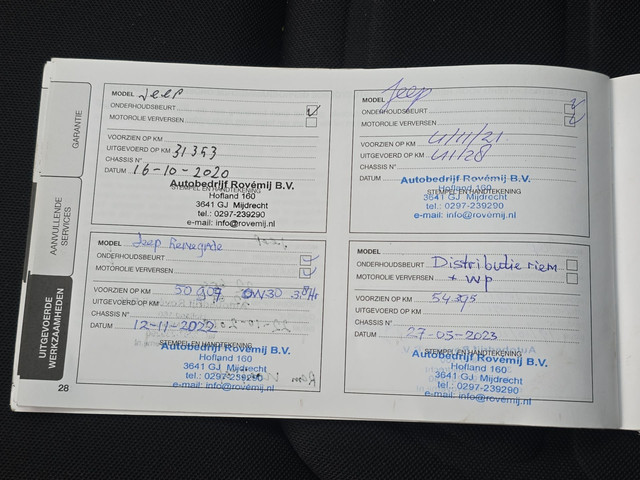 GARANTIE
AANVULLENDE
SERVICES
UITGEVOERDE
WERKZAAMHEDEN
28
MODEL Jeep
ONDERHOUDSBEURT
MOTOROLIE VERVERSEN
VOORZIEN OP KM
UITGEVOERD OP KM 31353
CHASSIS N°
DATUM 16-10-2020
Autobedrijf Rovémij B.V.
STEMPEL EN HANDTEKENING
Hofland 160
3641 GJ Mijdrecht
tel.: 0297-239290
e-mail: info@rovemij.nl
MODEL Jeep
ONDERHOUDSBEURT
MOTOROLIE VERVERSEN
VOORZIEN OP KM
UITGEVOERD OP KM
CHASSIS N°
DATUM
Autobedrijf Rovémij B.V.
STEMPEL EN HANDTEKENING
Hofland 160
3641 GJ Mijdrecht
tel.: 0297-239290
e-mail: info@rovemij.nl
MODEL Jeep Renegade
ONDERHOUDSBEURT
MOTOROLIE VERVERSEN
VOORZIEN OP KM 50 909 0W30
UITGEVOERD OP KM
CHASSIS N°
DATUM 12-11-2022
STEMPEL EN HANDTEKENING
Autobedrijf Rovémij B.V.
Hofland 160
3641 GJ Mijdrecht
tel.: 0297-239290
e-mail: info@rovemij.nl
MODEL
ONDERHOUDSBEURT Distributie riem
MOTOROLIE VERVERSEN + WP
VOORZIEN OP KM 54395
UITGEVOERD OP KM
CHASSIS N°
DATUM 27-05-2023
STEMPEL EN HANDTEKENING
Autobedrijf Rovémij B.V.
Hofland 160
3641 GJ Mijdrecht
tel.: 0297-239290
e-mail: info@rovemij.nl